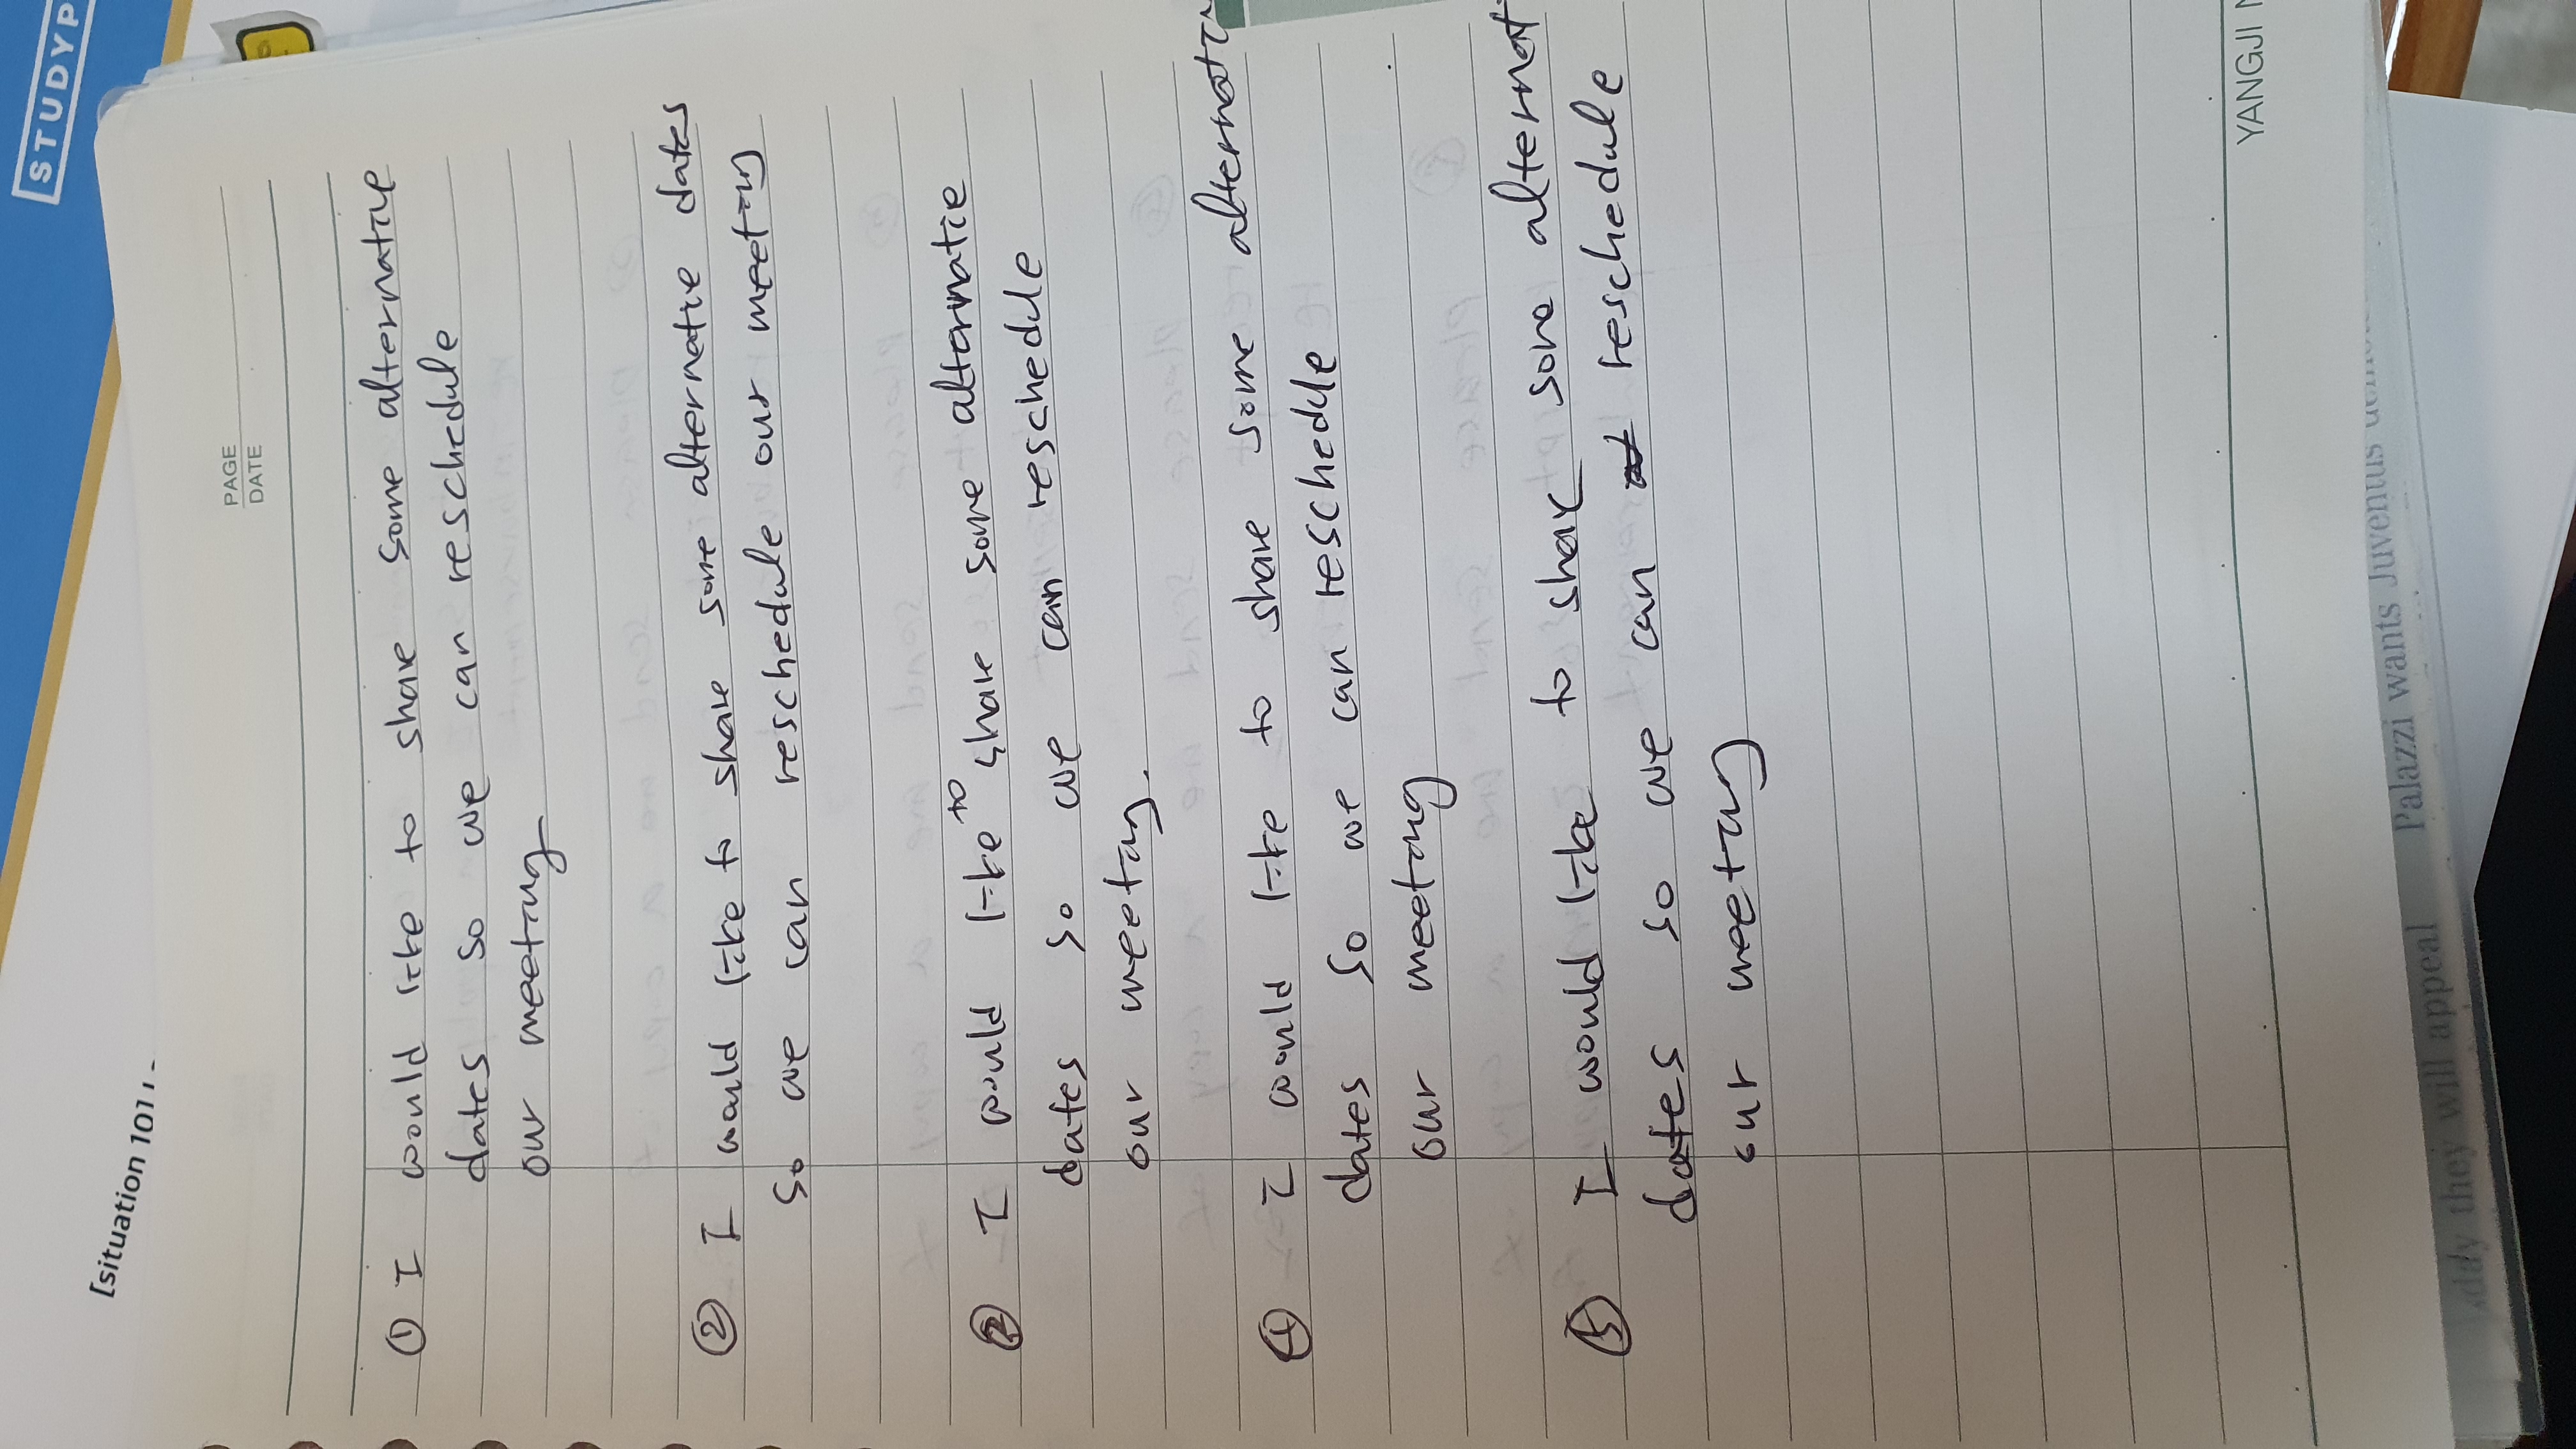 STUDYP
[situation 101]
PAGE
DATE
① I would like to share some alternative
dates so we can reschedule
our meeting
② I would like to share some alternative dates
so we can reschedule our meeting
I would like to share some alternatie
dates so we can reschedule
our meeting.
④ I would like to share some alternativ
dates so we can reschedule
our meeting
⑤ I would like to share some alternat
dates so we can reschedule
our meeting
YANGJI
ddy they will appeal Palazzi wants Juventus